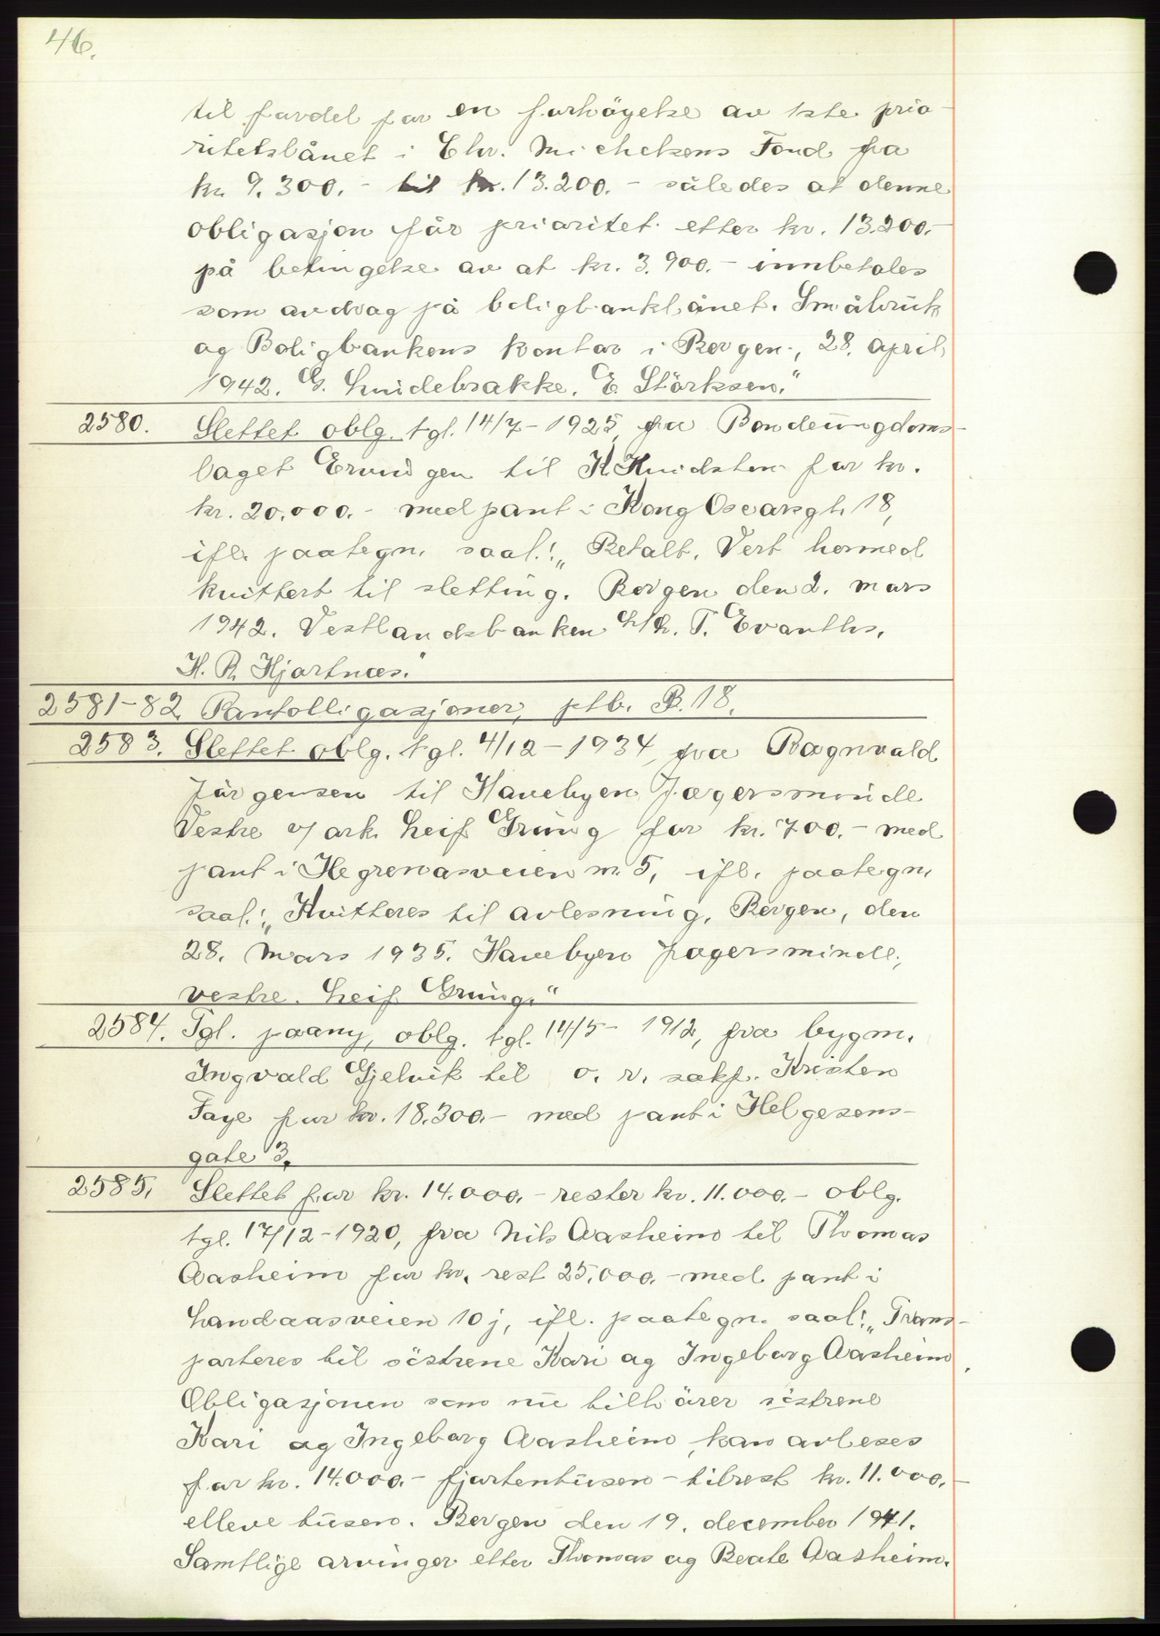 46.
til fordel for en forhöyelse av 1ste prio-
ritetslånet i Chr. Michelsens Fond fra
kr. 9.300.- til kr. 13.200.- således at denne
obligasjon får prioritet etter kr. 13.200.-
på betingelse av at kr. 3.900.- innbetales
som avdrag på boligbanklånet. Småbruk
og Boligbankens kontor i Bergen, 28. april
1942. G. E. Störksen."
2580. Slettet oblg. tgl. 14/7-1925, fra Bondeungdoms-
laget Ervingen til K. Knudsten for kr.
kr. 20.000.- med pant i Kong Oscarsgt. 18,
ifl. paategn. saal.: „Betalt. Vert hermed
kvittert til sletting. Bergen den 2. mars
1942. Vestlandsbanken L/L. T. Evanths.
H. R. Hjortnæs."
2581-82. Pantobligasjoner, ptb. B. 18.
2583. Slettet oblg. tgl. 4/12-1934, fra Ragnvald
Jörgensen til Havebyen Fagersminde
Vestre v/ ark. Leif Grung for kr. 700.- med
pant i Hegrenæsveien nr. 5, ifl. paategn.
saal.: „Kvitteres til avlesning. Bergen, den
28. mars 1935. Havebyen Fagersminde,
vestre. Leif Grung."
2584. Tgl. paany, oblg. tgl. 14/5-1912, fra bygm.
Ingvald Gjelvik til o. r. sakf. Kristen
Faye for kr. 18.300.- med pant i Helgesens-
gate 3.
2585. Slettet for kr. 14.000.- rester kr. 11.000.- oblg.
tgl. 17/12-1920, fra Nils Aasheim til Thomas
Aasheim for kr. rest 25.000.- med pant i
Landaasveien 10 j, ifl. paategn. saal.: „Trans-
porteres til söstrene Kari og Ingeborg Aasheim.
Obligasjonen som nu tilhörer söstrene
Kari og Ingeborg Aasheim, kan avleses
for kr. 14.000.- fjortentusen - tilrest kr. 11.000.-
elleve tusen. Bergen den 19. december 1941.
Samtlige arvinger etter Thomas og Beate Aasheim.